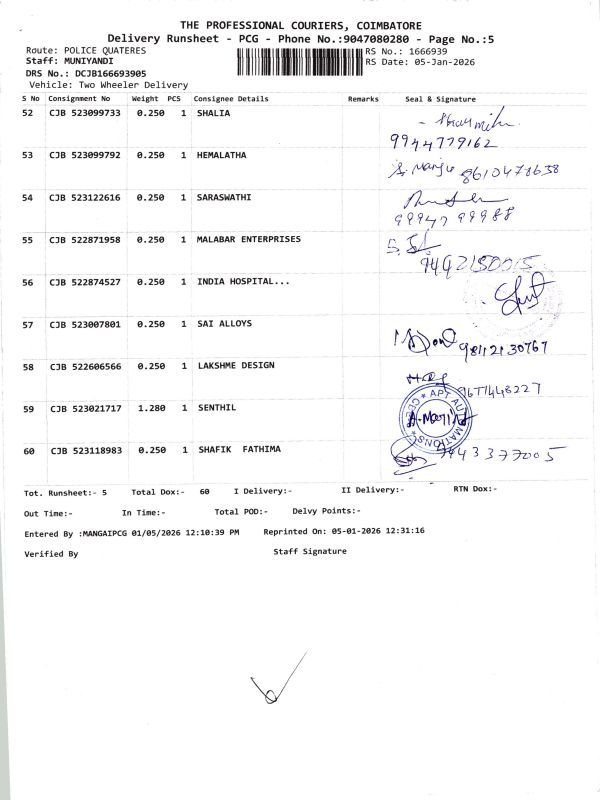 THE PROFESSIONAL COURIERS, COIMBATORE
Delivery Runsheet - PCG - Phone No.:9047080280 - Page No.:5
Route: POLICE QUATERES RS No.: 1666939
Staff: MUNIYANDI RS Date: 05-Jan-2026
DRS No.: DCJB166693905
Vehicle: Two Wheeler Delivery
S No Consignment No Weight PCS Consignee Details Remarks Seal & Signature
52 CJB 523099733 0.250 1 SHALIA
9944779162
53 CJB 523099792 0.250 1 HEMALATHA
8610478638
54 CJB 523122616 0.250 1 SARASWATHI
99947 99988
55 CJB 522871958 0.250 1 MALABAR ENTERPRISES
9442150015
56 CJB 522874527 0.250 1 INDIA HOSPITAL...
57 CJB 523007801 0.250 1 SAI ALLOYS
58 CJB 522606566 0.250 1 LAKSHME DESIGN
9677448227
59 CJB 523021717 1.280 1 SENTHIL
60 CJB 523118983 0.250 1 SHAFIK FATHIMA
9443377005
Tot. Runsheet:- 5 Total Dox:- 60 I Delivery:- II Delivery:- RTN Dox:-
Out Time:- In Time:- Total POD:- Delvy Points:-
Entered By :MANGAIPCG 01/05/2026 12:10:39 PM Reprinted On: 05-01-2026 12:31:16
Verified By Staff Signature